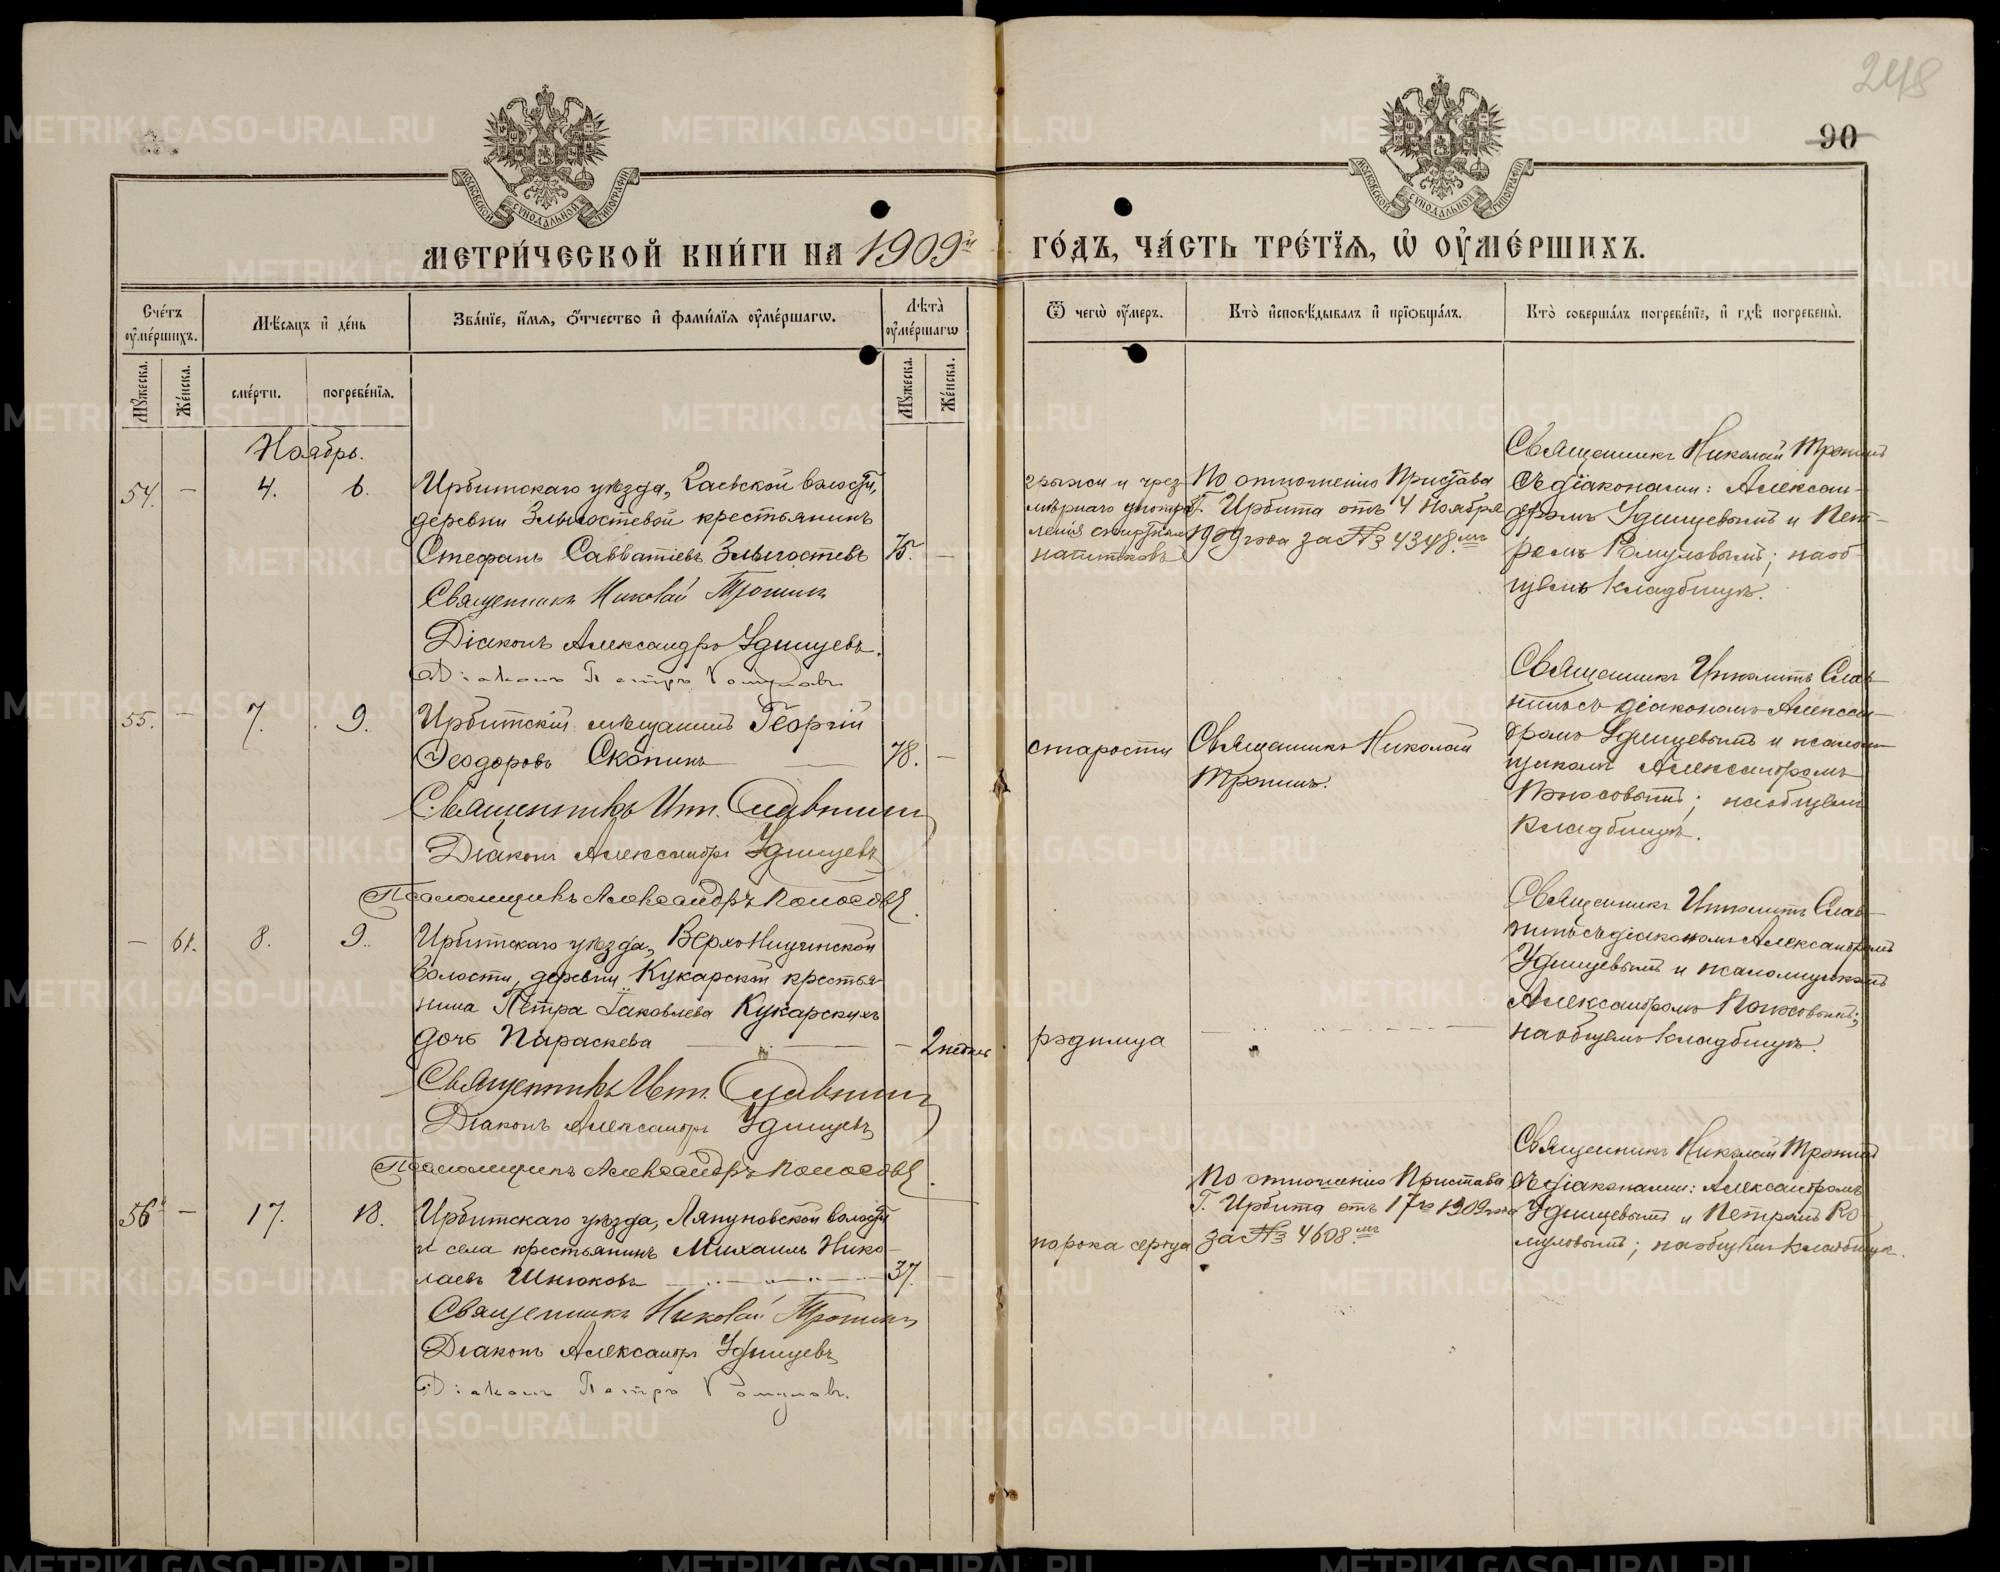 248
90
МОСКОВСКОЙ СѴНОДАЛЬНОЙ ТИПОГРАФІИ
МОСКОВСКОЙ СѴНОДАЛЬНОЙ ТИПОГРАФІИ
МЕТРИ́ЧЕСКОЙ КНИ́ГИ НА 1909й
ГО́ДЪ, ЧА́СТЬ ТРЕ́ТІѦ, Ѡ ОУ҆МЕ́РШИХЪ.
Сче́тъ оу҆ме́ршихъ.
Мѣ́сяцъ и҆ де́нь
Зва́нїе, и҆́мѧ, ѻ҆́тчество и҆ фами́лїѧ оу҆ме́ршагѡ.
Лѣ́та оу҆ме́ршагѡ
Ѿ чегѡ̀ оу҆́меръ.
Кто̀ и҆сповѣ́дывалъ и҆ прїобща́лъ.
Кто̀ соверша́лъ погребе́нїе, и҆ гдѣ̀ погребены̀.
Мꙋ́жеска.
Же́нска.
сме́рти.
погребе́нїѧ.
Мꙋ́жеска.
Же́нска.
Ноябрь.
54. — 4. 6.
Ирбитскаго уѣзда, волости,
деревни крестьянинъ
Стефанъ Савватіевъ 75. —
Священникъ Николай Тронинъ
Діаконъ Александръ Удинцевъ.
Діаконъ Петръ Ромуловъ.
грыжи и чрез-
мѣрнаго употреб-
ленія спиртныхъ
напитковъ
По отношенію Пристава
Г. Ирбита отъ 4 Ноября
1909 года за № 4348.мъ
Священникъ Николай Тронинъ
съ діаконами: Алексан-
дромъ Удинцевымъ и Пет-
ромъ Ромуловымъ; на об-
щемъ кладбищѣ.
55. — 7. 9.
Ирбитскій мѣщанинъ Георгій
Ѳеодоровъ Скопинъ — 78. —
Священникъ Ипп. Славнинъ
Діаконъ Александръ Удинцевъ
Псаломщикъ Александръ Поносовъ.
старости
Священникъ Николай
Тронинъ.
Священникъ Ипполитъ Слав-
нинъ съ діакономъ Алексан-
дромъ Удинцевымъ и псалом-
щикомъ Александромъ
Поносовымъ; на общемъ
кладбищѣ.
— 61. 8. 9.
Ирбитскаго уѣзда, Верхо-Ницинской
волости, деревни Кукарской крестья-
нина Петра Іаковлева Кукарскихъ
дочь Параскева — 2 недѣль
Священникъ Ипп. Славнинъ
Діаконъ Александръ Удинцевъ
Псаломщикъ Александръ Поносовъ.
родимца
Священникъ Ипполитъ Слав-
нинъ съ діакономъ Александромъ
Удинцевымъ и псаломщикомъ
Александромъ Поносовымъ;
на общемъ кладбищѣ.
56 — 17. 18.
Ирбитскаго уѣзда, Ляпуновской волости
и села крестьянинъ Михаилъ Нико-
лаевъ Шнюковъ — 37. —
Священникъ Николай Тронинъ
Діаконъ Александръ Удинцевъ
Діаконъ Петръ Ромуловъ.
порока сердца
По отношенію Пристава
Г. Ирбита отъ 17го 1909 года
за № 4608.мъ
Священникъ Николай Тронинъ
съ діаконами: Александромъ
Удинцевымъ и Петромъ Ро-
муловымъ; на общемъ кладбищѣ.
METRIKI.GASO-URAL.RU